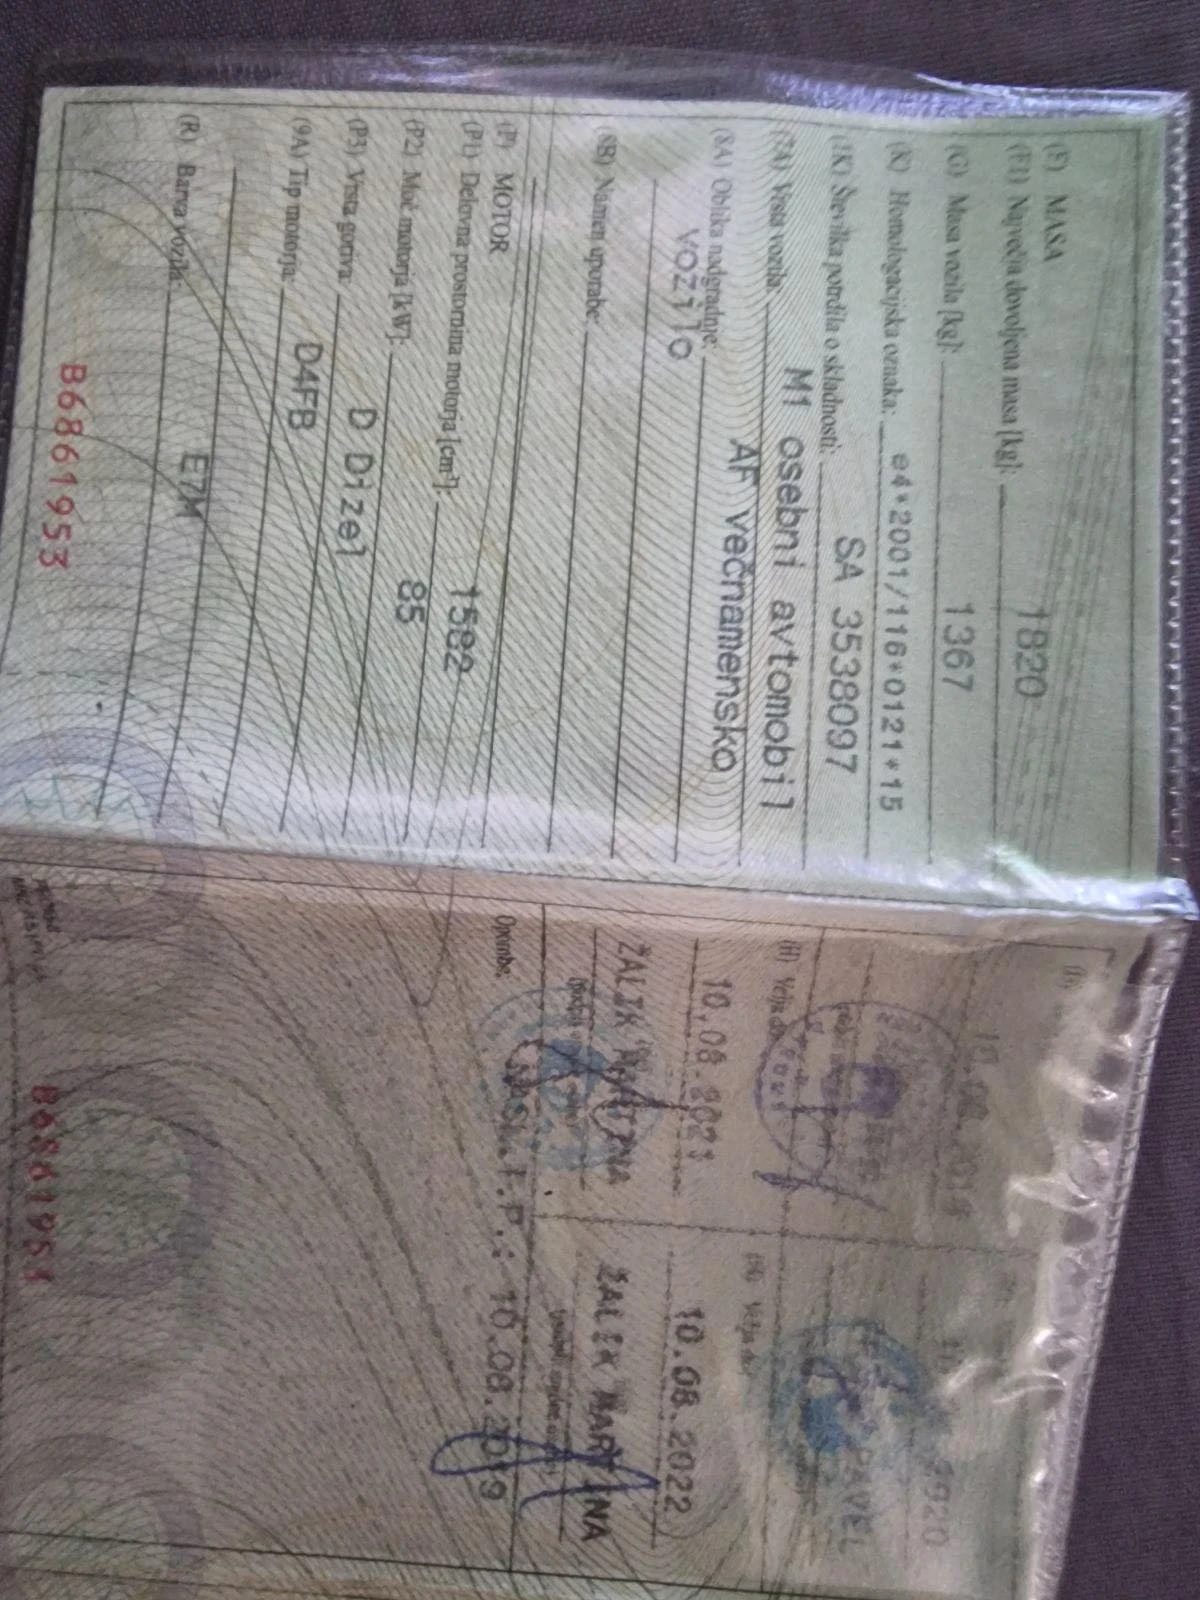 (F) MASA
(F1) Največja dovoljena masa [kg]: 1820
(G) Masa vozila [kg]: 1367
(K) Homologacijska oznaka: e4*2001/116*0121*15
(1K) Številka potrdila o skladnosti: SA 3538097
(7A) Vrsta vozila: M1 osebni avtomobil
(8A) Oblika nadgradnje: AF večnamensko
vozilo
(8B) Namen uporabe:
(P) MOTOR
(P1) Delovna prostornina motorja [cm³]: 1582
(P2) Moč motorja [kW]: 85
(P3) Vrsta goriva: D Dizel
(9A) Tip motorja: D4FB
(R) Barva vozila: E7M
B6861953
(H) Velja do
PAVEL
10.08.2021
10.08.2022
ŽALIK MARTINA
ŽALIK MARTINA
Opombe:
10.08.2009
B6861953